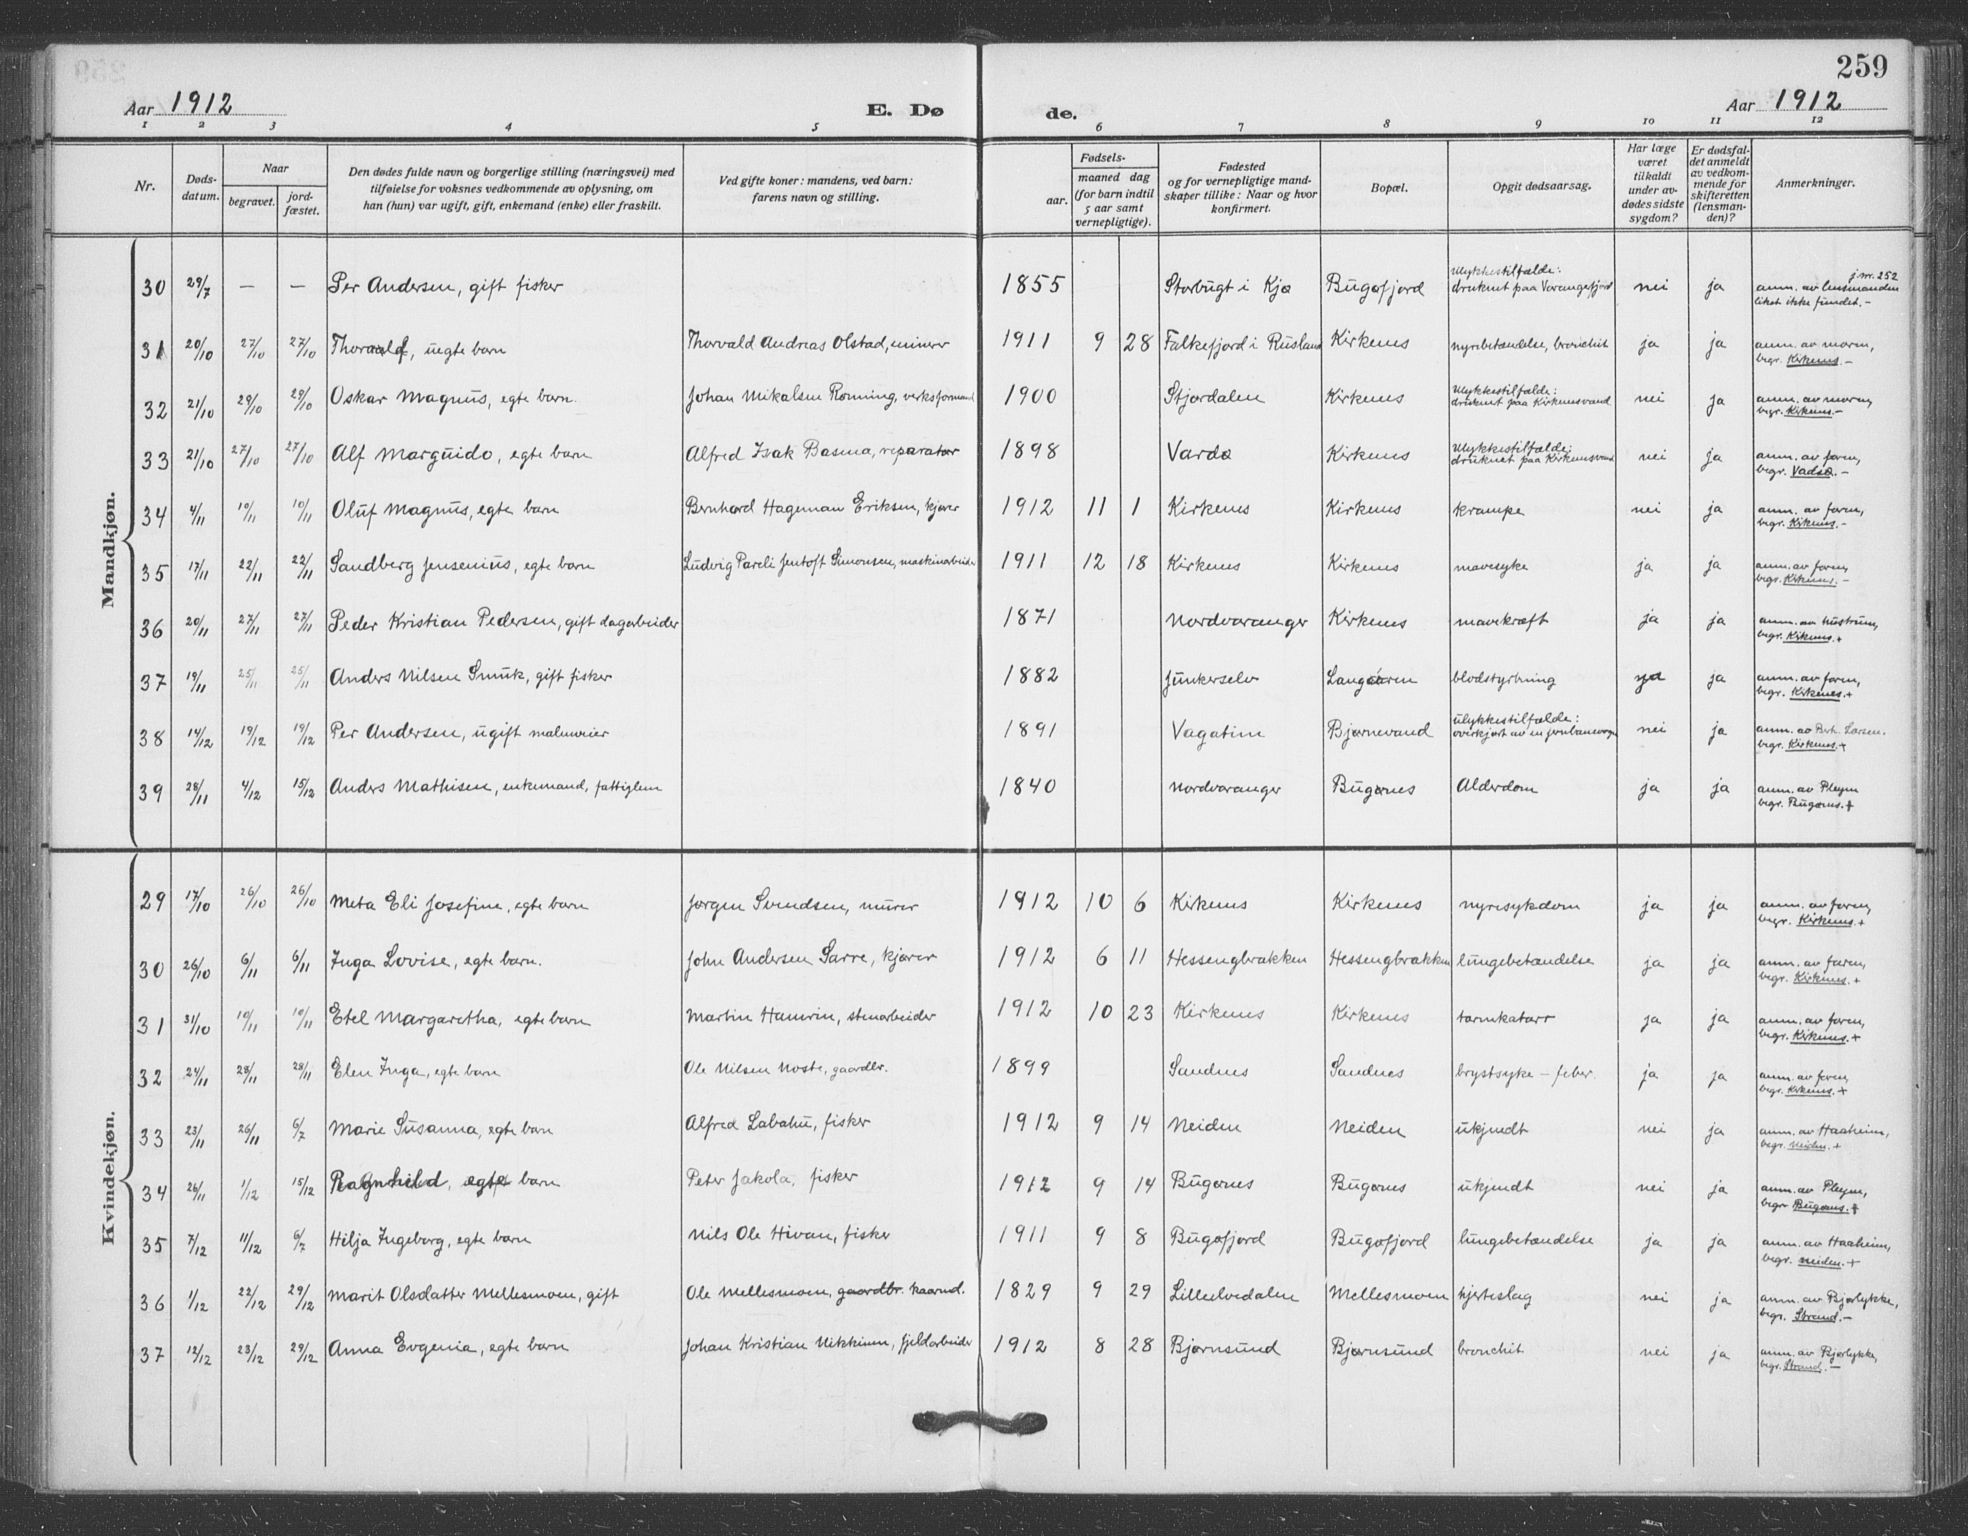 259
Aar 1912
E. Dø
de.
Aar 1912
1 2 3 4 5 6 7 8 9 10 11 12
Nr.
Døds-
datum.
Naar
begravet.
jord-
fæstet.
Den dødes fulde navn og borgerlige stilling (næringsvei) med
tilføielse for voksnes vedkommende av oplysning, om
han (hun) var ugift, gift, enkemand (enke) eller fraskilt.
Ved gifte koner: mandens, ved barn:
farens navn og stilling.
Fødsels-
aar.
maaned dag
(for barn indtil
5 aar samt
vernepligtige).
Fødested
og for vernepligtige mand-
skaper tillike: Naar og hvor
konfirmert.
Bopæl.
Opgit dødsaarsag.
Har læge
været
tilkaldt
under av-
dødes sidste
sygdom?
Er dødsfal-
det anmeldt
av vedkom-
mende for
skifteretten
(lensman-
den)?
Anmerkninger.
Mandkjøn.
30 29/7 — — Per Andersen, gift fisker 1855 Storbugt i Kjø Bugøfjord Ulykkestilfælde: druknet paa Varangerfjord nei ja j.nr. 252 anm. av lensmanden liket ikke fundet. –
31 20/10 27/10 27/10 Thorvald, uegte barn Thorvald Andreas Olstad, minør 1911 9 28 Falkefjord i Rusland Kirkenes nyrebetændelse, bronchit ja ja anm. av moren, begr. Kirkenes –
32 21/10 29/10 29/10 Oskar Magnus, egte barn. Johan Mikalsen Rønning, verksformand 1900 Stjørdalen Kirkenes Ulykkestilfælde: druknet paa Kirkenesvand nei ja anm. av moren, begr. Kirkenes –
33 21/10 27/10 27/10 Alf Marguido, egte barn Alfred Isak Basma, reparatør 1898 Vardø Kirkenes Ulykkestilfælde: druknet paa Kirkenesvand nei ja anm. av faren, begr. Vadsø. –
34 4/11 10/11 10/11 Oluf Magnus, egte barn Bernhard Hageman Eriksen, kjører 1912 11 1 Kirkenes Kirkenes krampe nei ja anm. av faren, begr. Kirkenes. –
35 17/11 22/11 22/11 Sandberg Jensenius, egte barn Ludvig Pareli Jentoft Simonsen, maskinarbeider 1911 12 18 Kirkenes Kirkenes mavesyke ja ja anm. av faren, begr. Kirkenes. –
36 20/11 27/11 27/11 Peder Kristian Pedersen, gift dagarbeider 1871 Nordvaranger Kirkenes mavekræft ja ja anm. av hustruen, begr. Kirkenes. +
37 19/11 25/11 25/11 Anders Nilsen Smuk, gift fisker 1882 Junkerselv Langøren blodstyrtning ja ja anm. av faren, begr. Kirkenes. +
38 14/12 19/12 19/12 Per Andersen, ugift malmveier 1891 Vagatim Bjørnevand ulykkestilfælde: overkjørt av en jernbanevogn nei ja anm. av Berh. Larsen. begr. Kirkenes. +
39 28/11 4/12 15/12 Anders Mathisen, enkemand, fattiglem 1840 Nordvaranger Bugønes Alderdom ja ja anm. av Pleym begr. Bugønes. +
Kvindekjøn.
29 17/10 26/10 26/10 Meta Eli Josefine, egte barn Jørgen Svendsen, murer 1912 10 6 Kirkenes Kirkenes nyresykdom ja ja anm. av faren, begr. Kirkenes. +
30 26/10 6/11 6/11 Inga Lovise, egte barn. John Andersen Sarre, kjører 1912 6 11 Hessengbrakken Hessengbrakken lungebetændelse ja ja anm. av faren, begr. Kirkenes. +
31 31/10 10/11 10/11 Etel Margaretha, egte barn Martin Hamrin, stenarbeider 1912 10 23 Kirkenes Kirkenes tarmkatarr ja ja anm. av faren, begr. Kirkenes. +
32 24/11 28/11 28/11 Elen Inga, egte barn Ole Nilsen Noste, gaardbr. 1899 Sandnes Sandnes brystsyke – feber. ja ja anm. av faren, begr. Kirkenes. +
33 23/11 26/11 6/7 Marie Susanna, egte barn Alfred Labahu, fisker 1912 9 14 Neiden Neiden ukjendt nei ja anm. av Haaheim, begr. Neiden. +
34 26/11 1/12 15/12 Ragnhild, egte barn Peter Jakola, fisker 1912 9 14 Bugønes Bugønes ukjendt nei ja anm. av Pleym, begr. Bugønes. +
35 7/12 11/12 6/7 Hilja Ingeborg, egte barn Nils Ole Hivan, fisker 1911 9 8 Bugøfjord Bugøfjord lungebetændelse ja ja anm. av Haaheim, begr. Neiden. +
36 1/12 22/12 29/12 Marit Olsdatter Mellesmoen, gift Ole Mellesmoen, gaardbr. kaarmd. 1829 9 29 Lilleelvedalen Mellesmoen hjerteslag nei ja anm. av Bjørlykke, begr. Strand. –
37 12/12 23/12 29/12 Anna Evgenia, egte barn Johan Kristian Nikkinen, fjeldarbeider 1912 8 28 Bjørnsund Bjørnsund bronchit nei ja anm. av Bjørlykke, begr. Strand. –